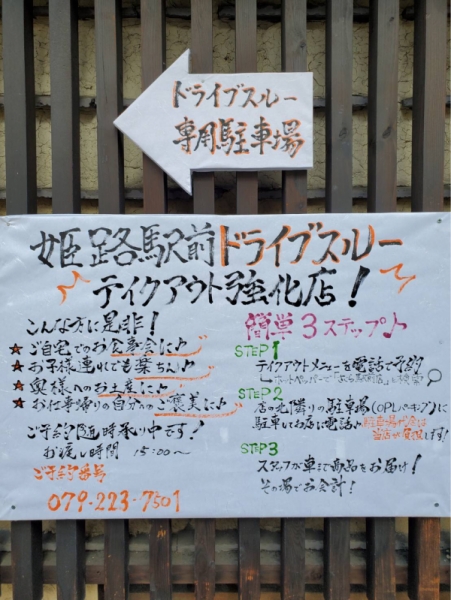 ドライブスルー
専用駐車場
姫路駅前ドライブスルー
テイクアウト強化店!
こんな方に是非!
★ご自宅でのお食事会に♪
★お子様連れでも楽ちん♪
★奥様へのお土産に♪
★お仕事帰りの自分へのご褒美に♪
ご予約随時承り中です!
お渡し時間 15:00〜
ご予約番号
079-223-7501
簡単3ステップ♪
STEP1
テイクアウトメニューを電話で予約
ホットペッパーで
STEP2
店の北隣りの駐車場(OPLパーキング)に
駐車してお店に電話♪ 駐車場代金は
当店が負担します!
STEP3
スタッフが車まで商品をお届け!
その場でお会計!